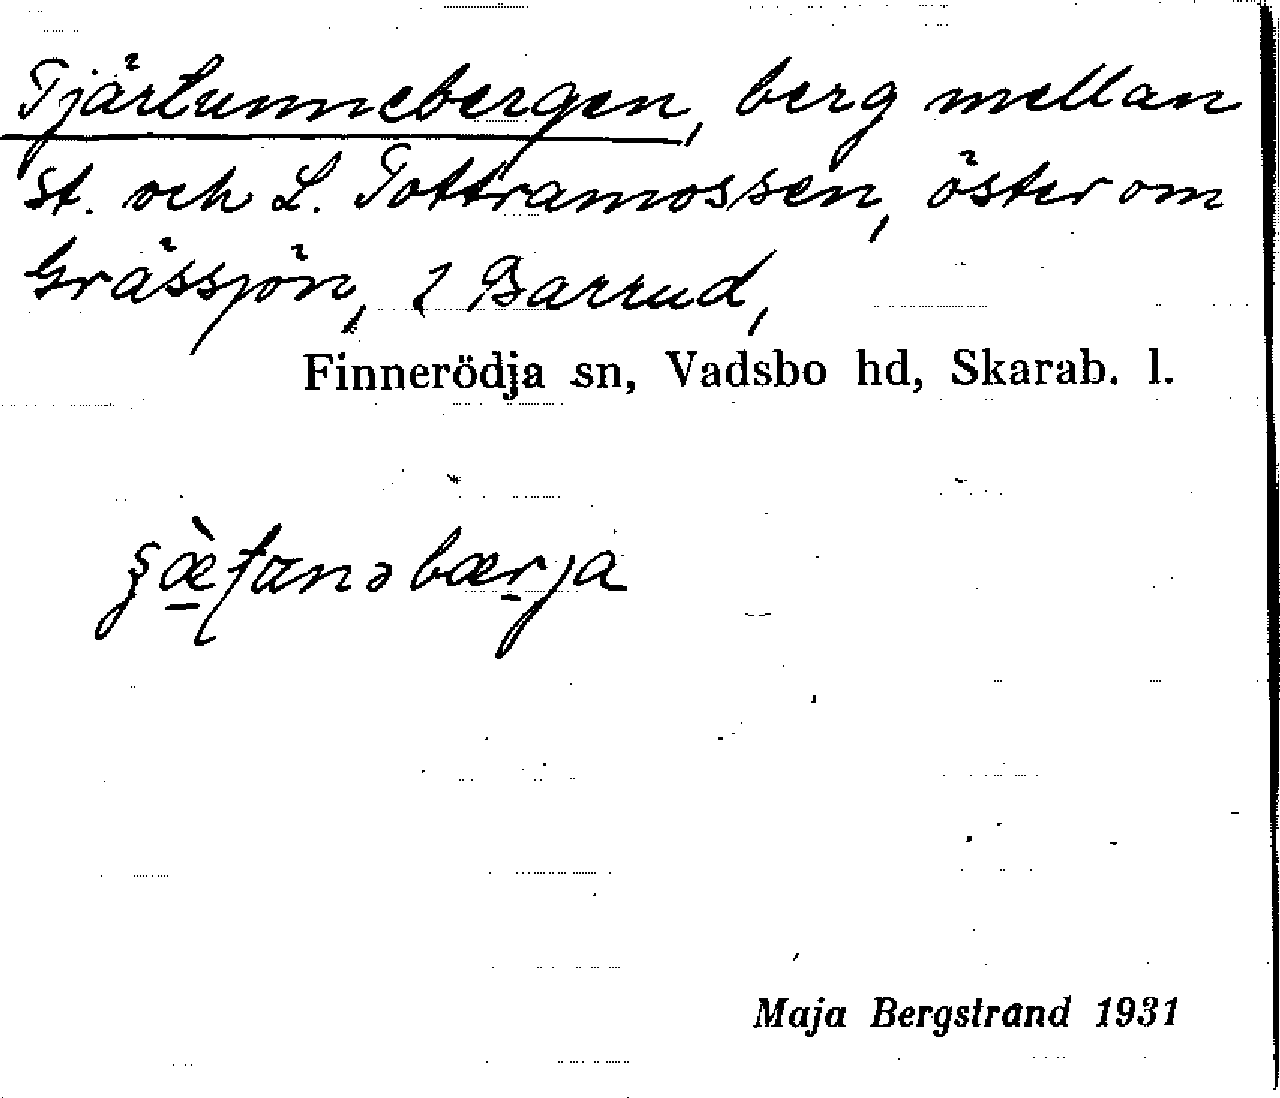 Tjärtunnebergen, berg mellan
St. och L. Tottramossen, öster om
Grässjön, 2 Barrud,
Finnerödja sn, Vadsbo hd, Skarab. l.
Maja Bergstrand 1931